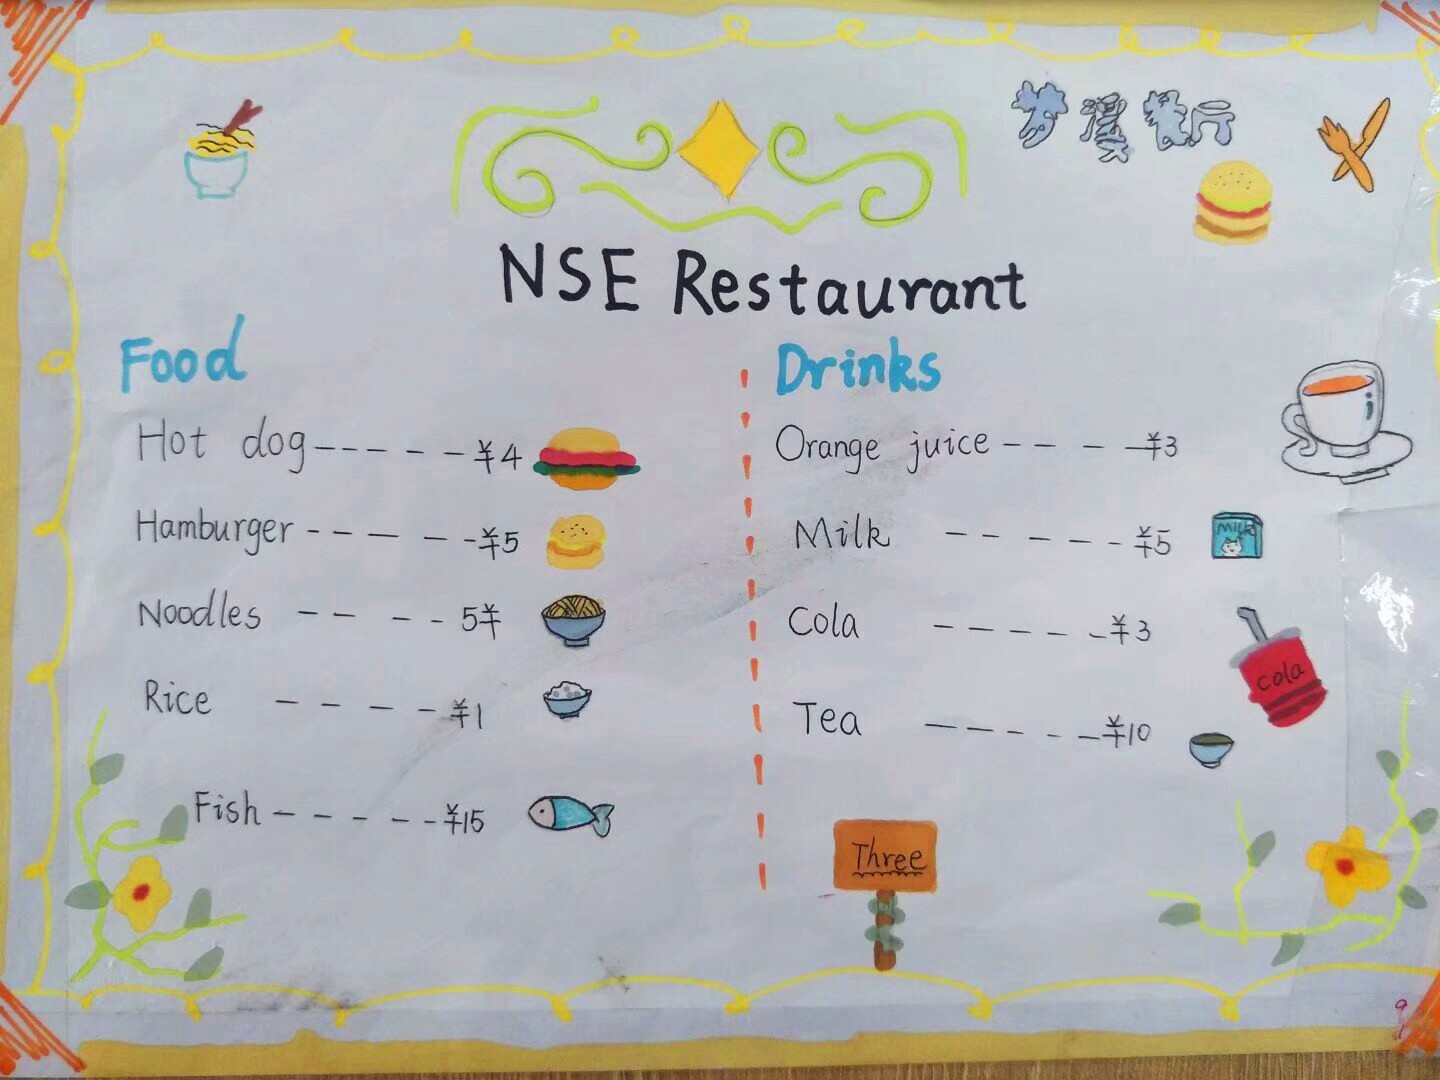 梦漫餐厅
NSE Restaurant
Food
Hot dog ----- ¥4
Hamburger ------ ¥5
Noodles -- -- 5¥
Rice ----- ¥1
Fish ------ ¥15
Drinks
Orange juice ---- ¥3
Milk ------ ¥5
Milk
Cola ------ ¥3
cola
Tea ------ ¥10
Three